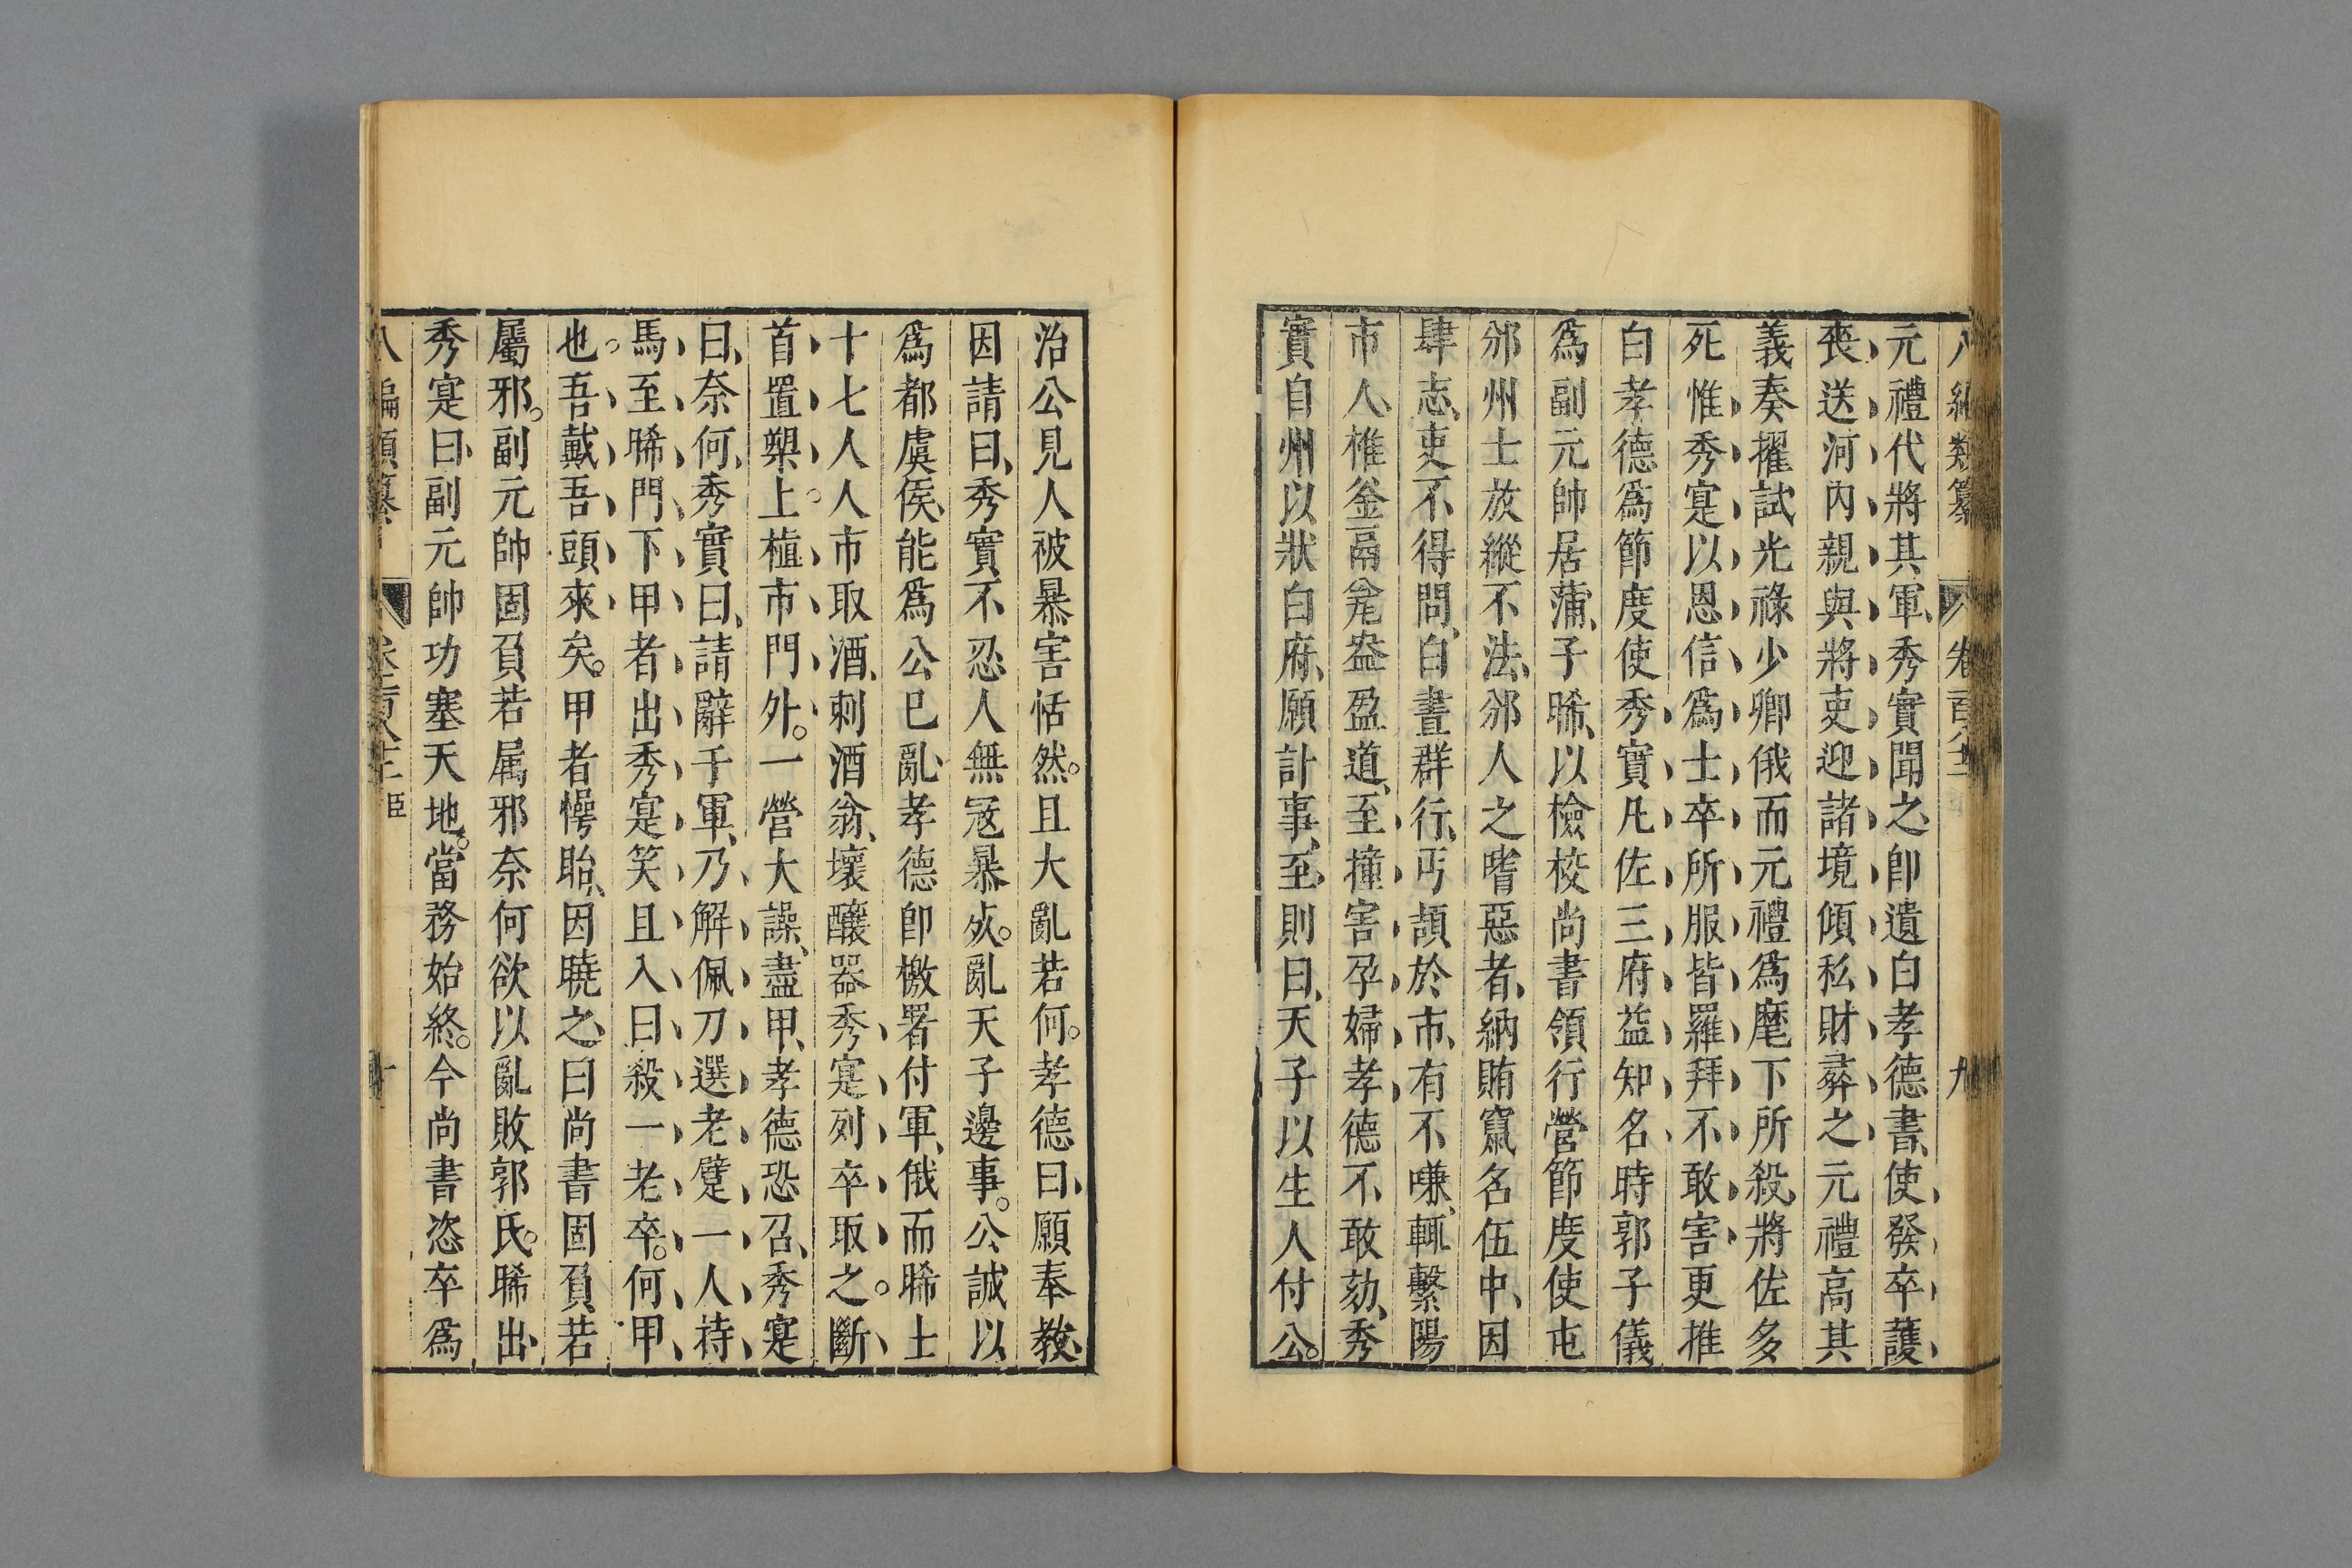 八編類纂 卷百八十二 九
元禮代將其軍、秀實聞之、卽遺白孝德書、使發卒護
喪、送河內、親與將吏迎諸境、傾私財葬之、元禮高其
義、奏擢試光祿少卿、俄而元禮爲麾下所殺、將佐多
死、惟秀寔以恩信爲士卒所服、皆羅拜不敢害、更推
白孝德爲節度使、秀實凡佐三府、益知名、時郭子儀
爲副元帥居蒲、子晞、以檢校尚書領行營節度使屯
邠州、士放縱不法、邠人之嗜惡者、納賄竄名伍中、因
肆志、吏不得問、白晝群行、丐頡於市、有不嗛、輒擊陽
市人、椎釜鬲瓮盎盈道、至撞害孕婦、孝德不敢劾、秀
實自州以狀白府、願計事、至、則曰、天子以生人付公。
治公見人被暴害恬然。且大亂若何。孝德曰、願奉教、
因請曰、秀實不忍人無寇暴死。亂天子邊事。公誠以
爲都虞侯、能爲公已亂、孝德卽檄署付軍、俄而晞士
十七人人市取酒、刺酒翁、壞釀器、秀寔列卒取之。斷
首置槊上。植市門外。一營大譟、盡甲、孝德恐召、秀寔
曰、奈何、秀實曰、請辭于軍、乃解佩刀選老躄一人持
馬、至晞門下、甲者出、秀寔笑且入曰、殺一老卒。何甲
也。吾戴吾頭來矣。甲者愕眙、因曉之、曰尚書固負若
屬邪。副元帥固負若属邪、奈何欲以亂敗郭氏。晞出、
秀寔曰、副元帥功塞天地。當務始終。今尚書恣卒爲
八編類纂 卷一百八十二 臣 十